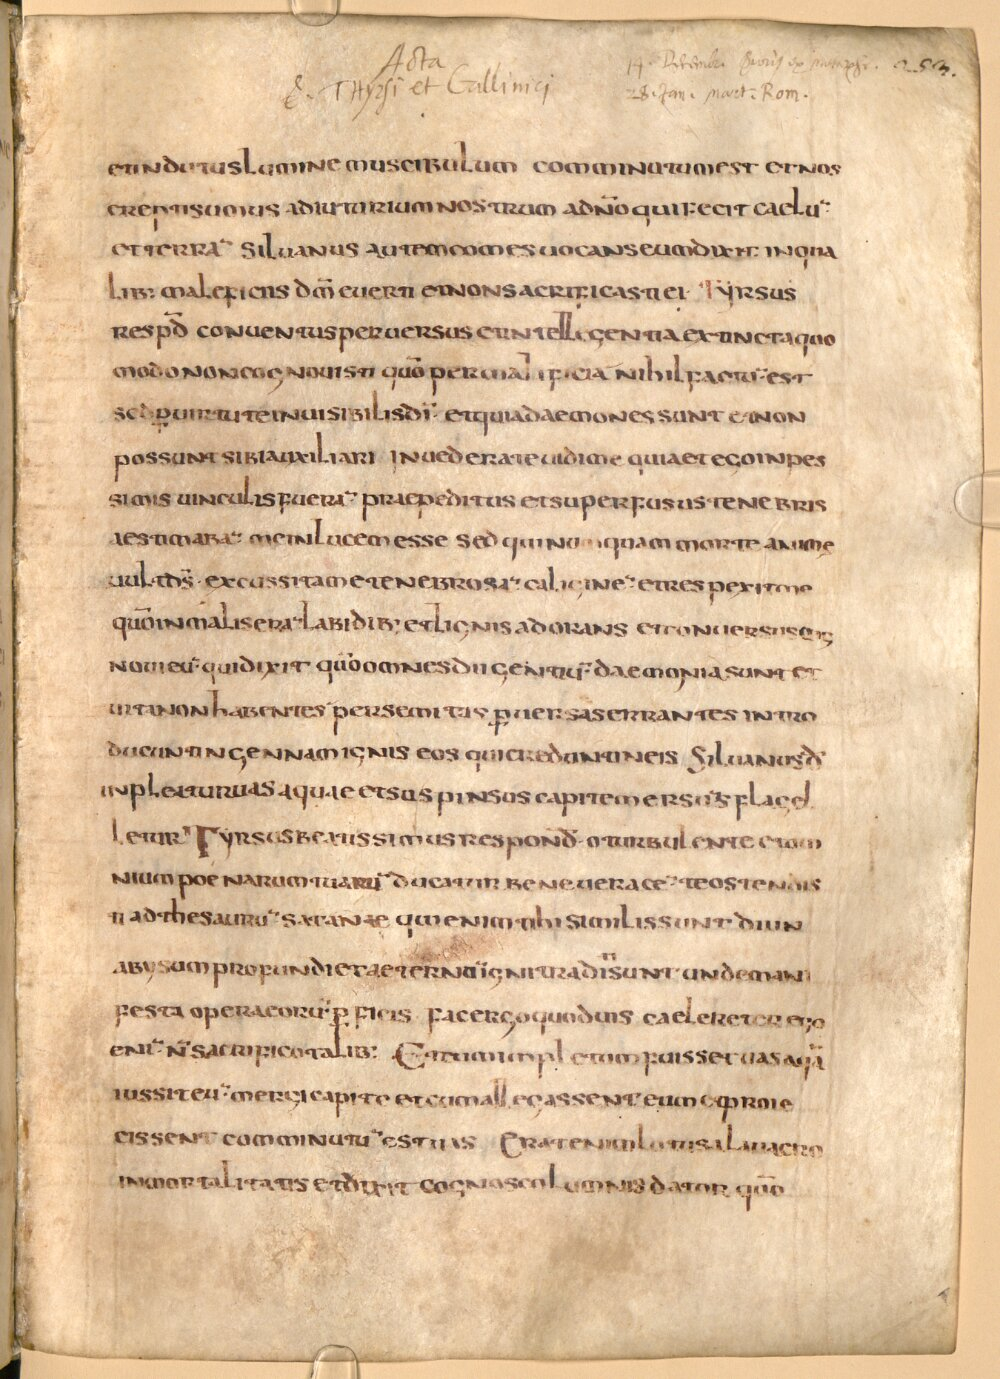 Acta
S. Thyrsi et Gallinici
14. Decembr.
28. Jan. mart. Rom.
253.
et indutus lumine muscibulum comminutum est et nos
ereptisumus adiutirium nostrum ad dn̄o qui fecit caelū
et terrā Siluanus autem comes uocans eum dixit in qua
lib; maleficiis dm̄ euerti et non sacrificasti ei Tyrsus
resp̄d conuentus peruersus et intellegentia extincta quo
modo non cognouisti quō per malificia nihil factū est
sed p uirtute inuisibilis dī et quia daemones sunt et non
possunt sibi auxiliari inuederate uidi me quia et ego in pes
simis uinculis fuerā praepeditus et superfusus tenebris
aestimabā me in lucem esse sed qui numquam morte anime
uult ds̄ excussit a me tenebrosā caliginē et respexit me
quō in malis erā labidib; et lignis adorans et conuersus
noui eū qui dixit quō omnes dii gentiū daemonia sunt et
uita non habentes per semitas puersas errantes intro
ducunt in gennam ignis eos qui credunt in eis Siluanus d̄
inpleatur uas aquae et suspinsus capite mersus flagel
letur Tyrsus beatissimus respond̄ o turbulente et om
nium poenarum tuarū ducatur bene uerace te ostendis
ti ad thesaurū satanae qui enim tibi similis sunt diun
abysum profundi et aeternū igni traditi sunt unde mani
festa opera eorū pficis fac ergo quod uis caelereter ego
enī n̄ sacrifico talib; Et cum impletum fuisset uas aquā
iussit eū mergi capite et cum allegassent eum et proie
cissent comminutū est uas Erat enim lotus a lauacro
inmortalitatis et dixit cognosco luminis dator quō